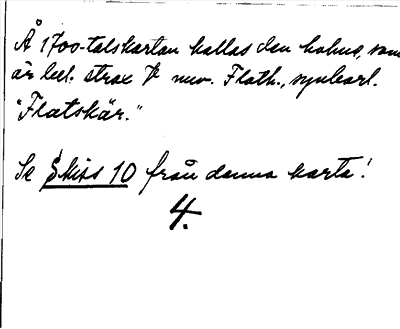 Å 1700-talskartan kallas den holme, som
är bel. strax V nuv. Flath., synbarl.
"Flatskär."
Se Skiss 10 från denna karta!
4.